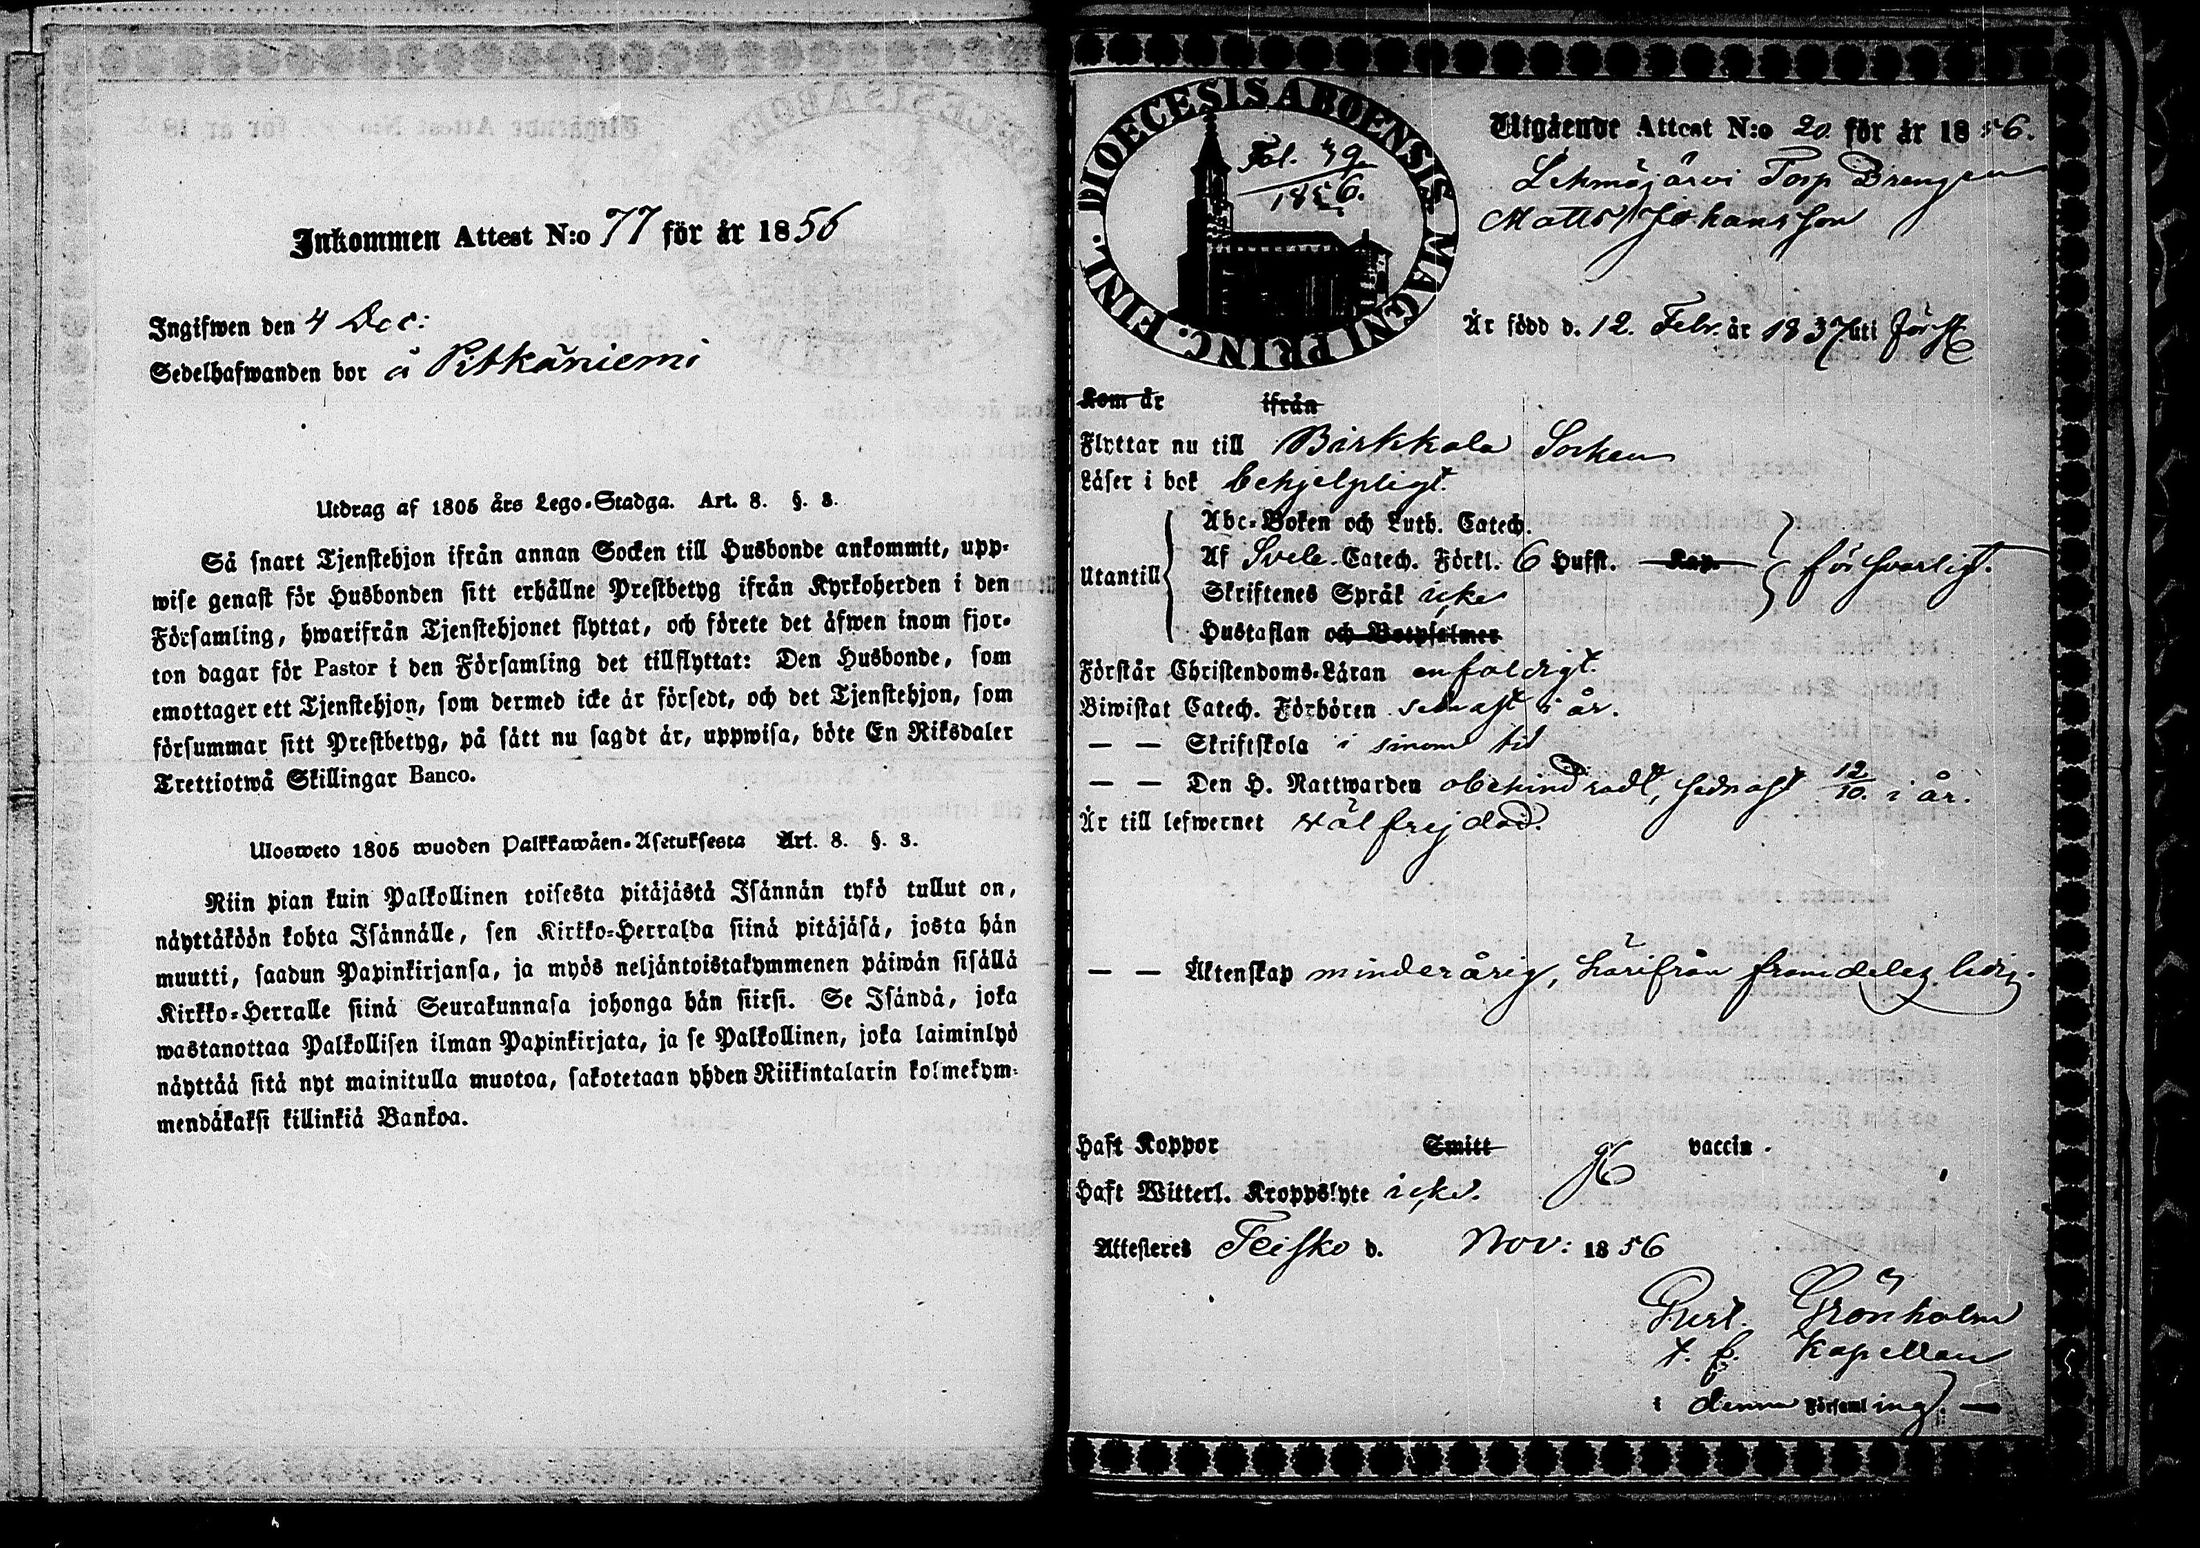 Inkommen Attest N:o 77 för år 1856
Ingifwen den 4 Dec:
Sedelhafwanden bor å Pitkäniemi
Utdrag af 1805 års Lego-Stadga. Art. 8. §. 3.
Så snart Tjenstehjon ifrån annan Socken till Husbonde ankommit, upp-
wise genast för Husbonden sitt erhållne Prestbetyg ifrån Kyrkoherden i den
Församling, hwarifrån Tjenstehjonet flyttat, och förete det äfwen inom fjor-
ton dagar för Pastor i den Församling det tillflyttat: Den Husbonde, som
emottager ett Tjenstehjon, som dermed icke är försedt, och det Tjenstehjon, som
försummar sitt Prestbetyg, på sätt nu sagdt är, uppwisa, böte En Riksdaler
Trettiotwå Skillingar Banco.
Ulosweto 1805 wuoden Palkkawäen-Asetuksesta Art. 8. §. 3.
Niin pian kuin Palkollinen toisesta pitäjästä Isännän tykö tullut on,
näyttäköön kohta Isännälle, sen Kirkko-Herralda siinä pitäjäsä, josta hän
muutti, saadun Papinkirjansa, ja myös neljäntoistakymmenen päiwän sisällä
Kirkko-Herralle siinä Seurakunnasa johonga hän siirsi. Se Isändä, joka
wastanottaa Palkollisen ilman Papinkirjata, ja se Palkollinen, joka laiminlyö
näyttää sitä nyt mainitulla muotoa, sakotetaan yhden Riikintalarin kolmekym-
mendäkaksi killinkiä Bankoa.
DIOECESIS ABOENSIS MAGNI PRINC. FINL.
Fol. 49
1856.
Utgående Attest N:o 20 för år 1856.
Lehmäjärvi Torp Drengen
Matts Johansson
Är född d. 12. Febr. år 1837 uti förs
Kom år ifrån
Flyttar nu till Birkkala Socken
Läser i bok behjelpligt.
Utantill
Abc-Boken och Luth. Catech.
Af Svele. Catech. Förkl. 6 Hufst. Kap.
Skriftenes Språk icke
Hustaflan och Botpsalmer
försvarligt.
Förstår Christendoms-Läran enfaldigt.
Biwistat Catech. Förhören sednast i år.
— — Skriftskola i sinom tid
— — Den H. Nattwarden obehindradt, sednast 12/10. i år.
Är till lefwernet väl frejdad.
— — Äktenskap minderårig, härifrån framdeles ledig.
Haft Koppor Smitt vaccin.
Haft Witterl. Kroppslyte icke.
Attesteres Teisko d. Nov: 1856
Gust. Grönholm
t. f. Kapellan
i denna Församling. —